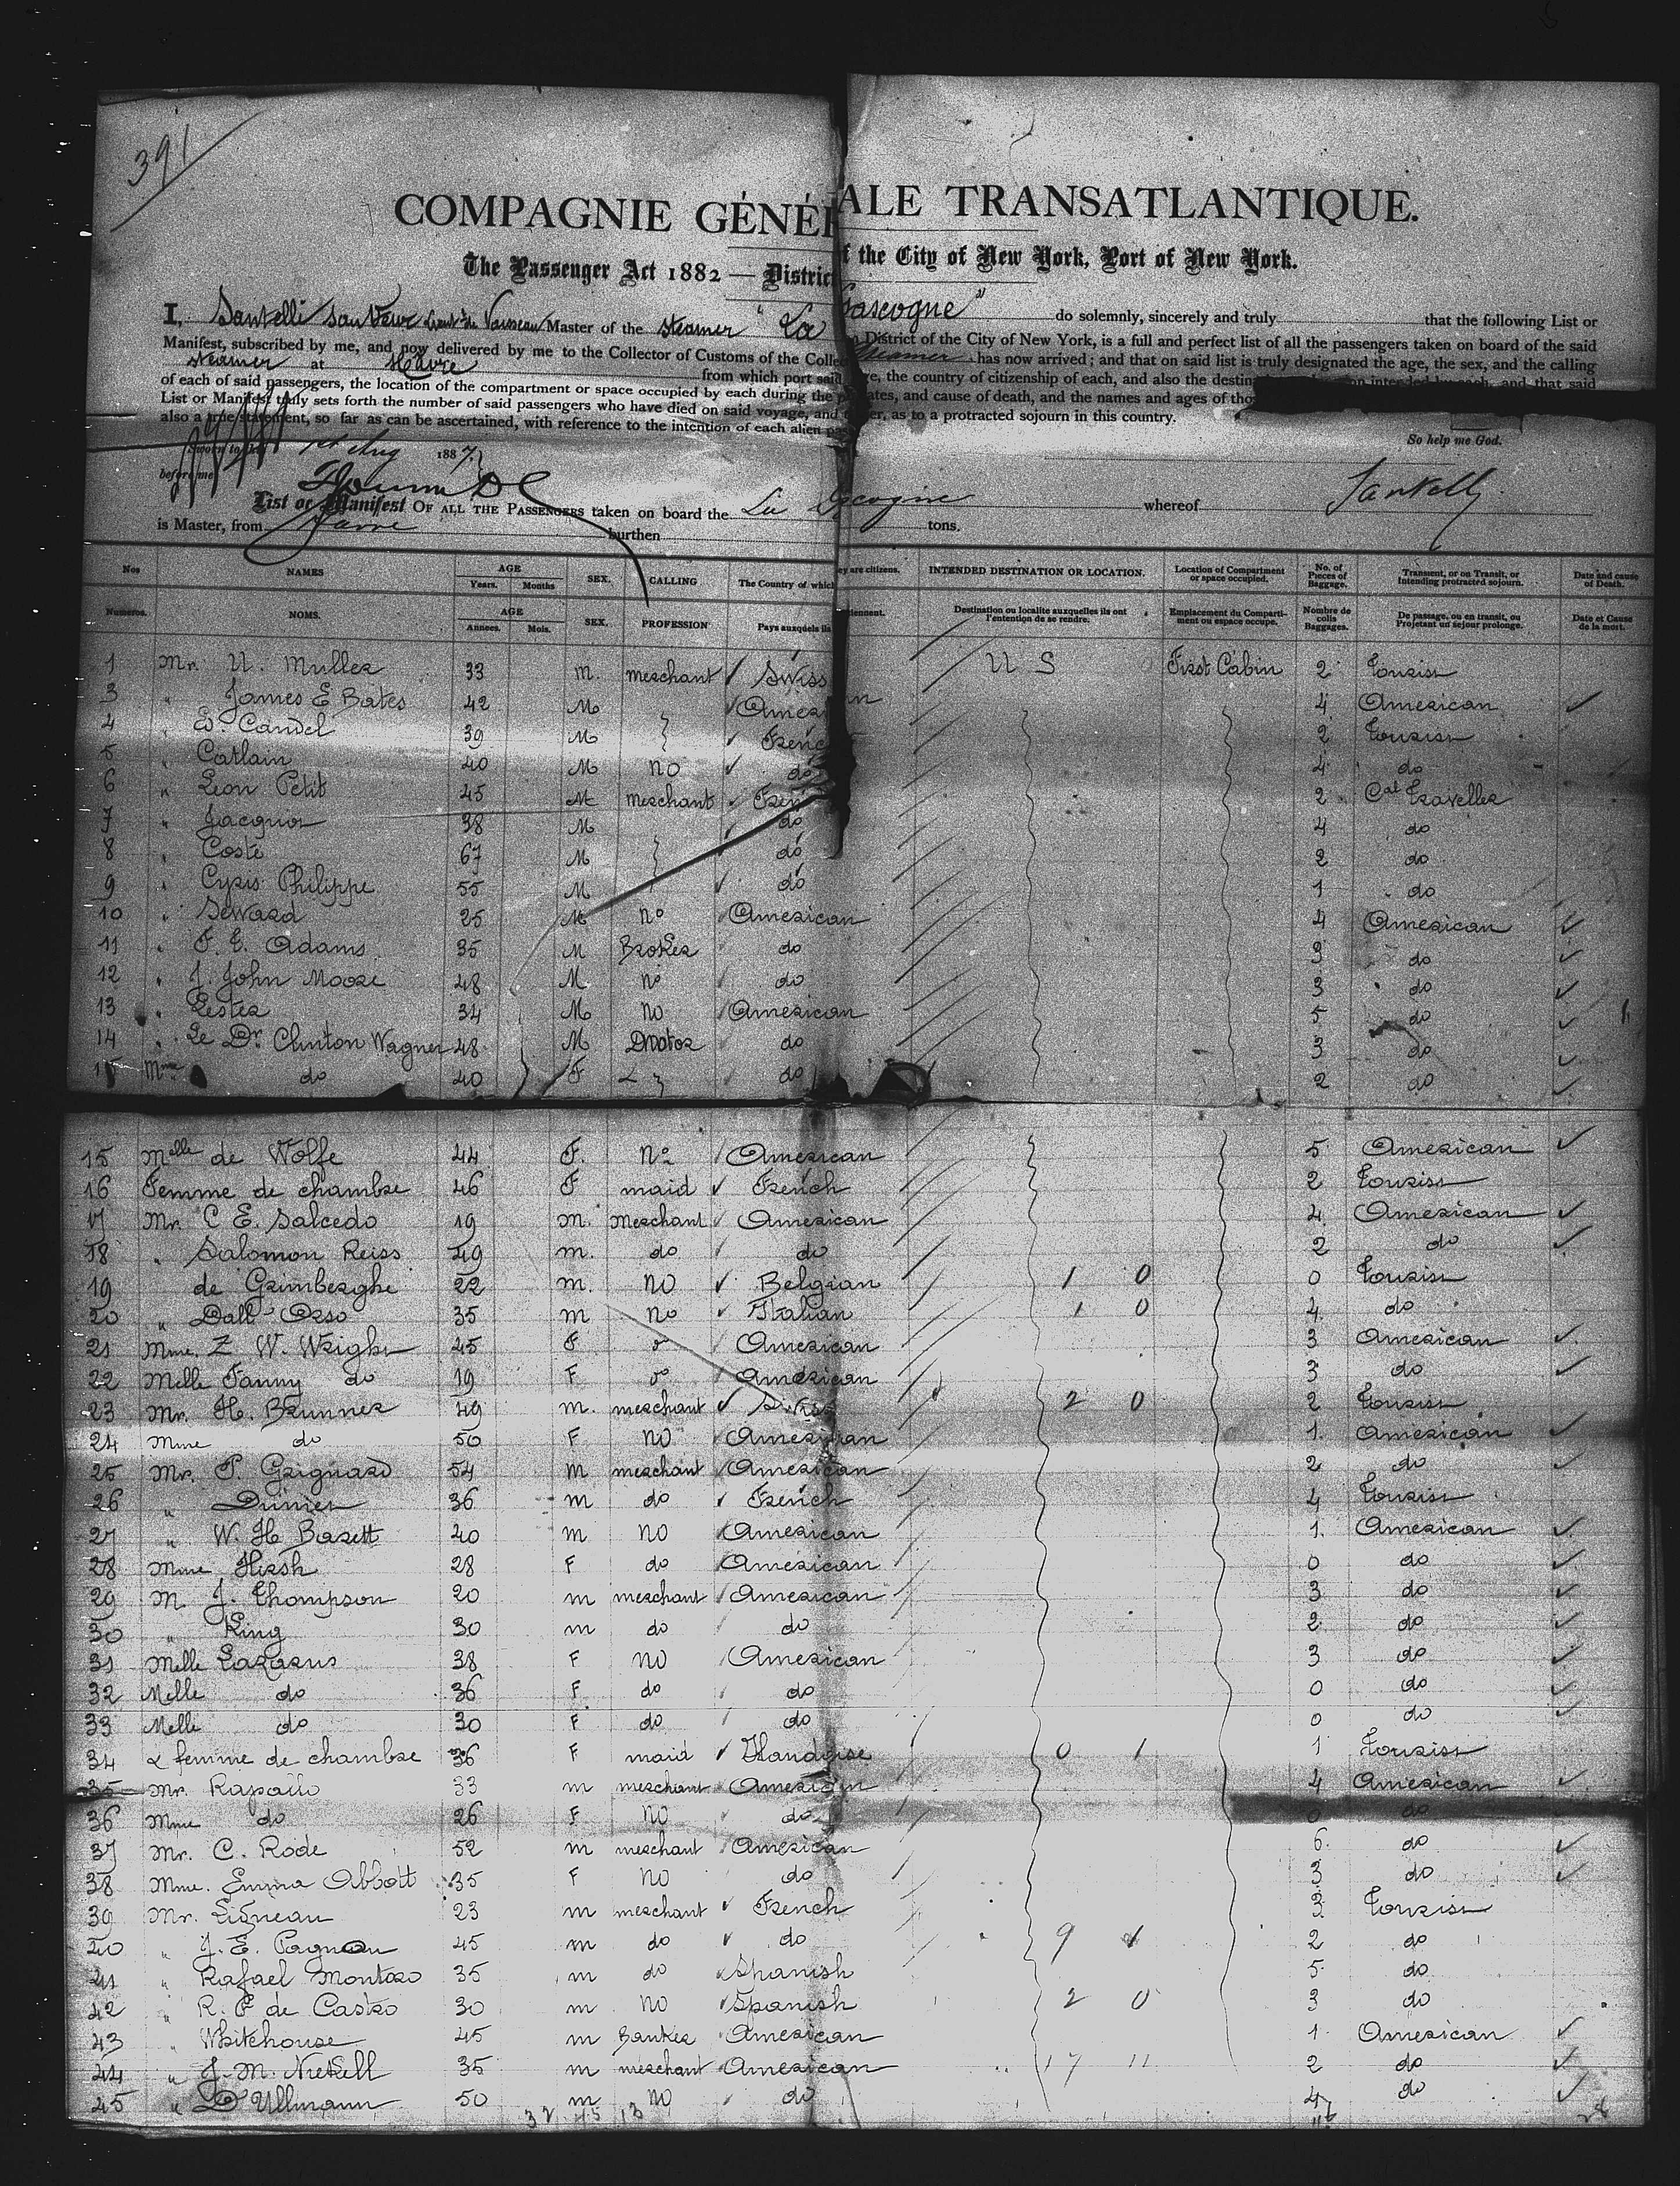 391
COMPAGNIE GÉNÉRALE TRANSATLANTIQUE.
The Passenger Act 1882 — District of the City of New York, Port of New York.
I, Santelli Sauveur Lieut de Vaisseau Master of the steamer "La Gascogne" do solemnly, sincerely and truly that the following List or
Manifest, subscribed by me, and now delivered by me to the Collector of Customs of the Collection District of the City of New York, is a full and perfect list of all the passengers taken on board of the said
steamer at Havre from which port said steamer has now arrived; and that on said list is truly designated the age, the sex, and the calling
of each of said passengers, the location of the compartment or space occupied by each during the the country of citizenship of each, and also the destination intended by each, and that said
List or Manifest truly sets forth the number of said passengers who have died on said voyage, and dates, and cause of death, and the names and ages of those
also a true statement, so far as can be ascertained, with reference to the intention of each alien as to a protracted sojourn in this country.
So help me God.
Sworn to 1st Aug 1887.
before me
List or Manifest OF ALL THE PASSENGERS taken on board the La Gascogne whereof Santelli
is Master, from Havre burthen tons.
Nos NAMES AGE Years. Months SEX. CALLING The Country of which they are citizens. INTENDED DESTINATION OR LOCATION. Location of Compartment or space occupied. No. of Pieces of Baggage. Transient, or on Transit, or Intending protracted sojourn. Date and cause of Death.
Numeros. NOMS. AGE Annees. Mois. SEX. PROFESSION Pays auxquels ils Destination ou localite auxquelles ils ont l'entention de se rendre. Emplacement du Comparti- ment ou espace occupe. Nombre de colis Baggages. De passage, ou en transit, ou Projetant un sejour prolonge. Date et Cause de la mort.
1 Mr. U. Muller 33 M. merchant Swiss U S First Cabin 2 Tourist
3 " James E Bates 42 M American 4 American
4 " E. Candel 39 M French 2 Tourist
5 " Catlain 40 M no do 4 do
6 " Leon Petit 45 M merchant French 2 Cal Traveller
7 " Jacquot 38 M do 4 do
8 " Coste 67 M do 2 do
9 " Cyris Philippe 55 M do 1 do
10 " Seward 25 M no American 4 American
11 " F. E. Adams 35 M Broker do 3 do
12 " J. John Moore 48 M no do 3 do
13 " Lester 34 M no American 5 do
14 " Le Dr Clinton Wagner 48 M Doctor do 3 do
15 Mme do 40 F do 2 do
15 Melle de Wolfe 44 F. No American 5 American
16 Femme de chambre 46 F maid French 2 Tourist
17 Mr. C E. Salcedo 19 m. merchant American 4 American
18 " Salomon Reiss 49 m. do do 2 do
19 de Grimberghe 22 m. no Belgian 1 0 0 Tourist
20 " Dall'Orso 35 m no Italian 1 0 4 do
21 Mme. Z W. Wright 45 F American 3 American
22 Melle Fanny do 19 F American 3 do
23 Mr. H. Brunner 49 m. merchant Swiss 2 0 2 Tourist
24 Mme do 50 F no American 1. American
25 Mr. P. Grignard 54 m merchant American 2 do
26 " 36 m do French 4 Tourist
27 " W. H Barett 40 m no American 1. American
28 Mme Hirsh 28 F do American 0 do
29 M. J. Thompson 20 m merchant American 3 do
30 " King 30 m do do 2 do
31 Melle Lazarus 38 F no American 3 do
32 Melle do 36 F do do 0 do
33 Melle do 30 F do do 0 do
34 & femme de chambre 36 F maid 0 1 1 Tourist
35 Mr. Rapallo 33 m merchant American 4 American
36 Mme do 26 F no do 0 do
37 Mr. C. Rode 52 m merchant American 6. do
38 Mme. Emma Abbott 35 F no do 3 do
39 Mr. Ligneau 23 m merchant French 3 Tourist
40 " J. E. Pagnon 45 m do do 9 2 do
41 " Rafael Montoro 35 m do Spanish 5 do
42 " R. P de Castro 30 m no Spanish 2 0 3 do
43 " Whitehouse 45 m Banker American 1. American
44 " J. M. Nickell 35 m merchant American 17 11 2 do
45 " D Ullmann 50 m no do 4 do
32 45 13 28